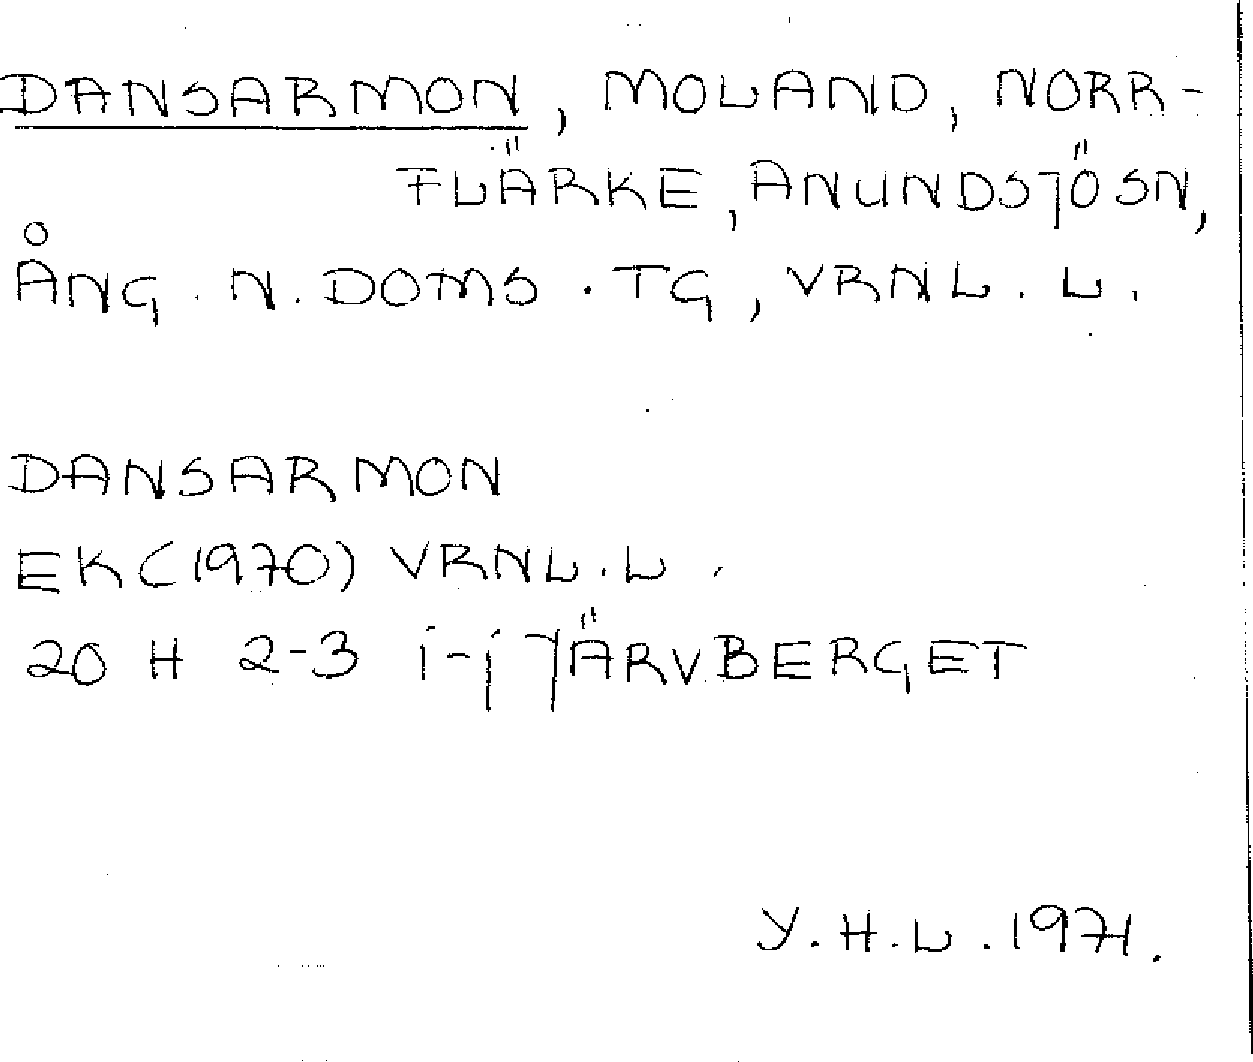 DANSARMON, MOLAND, NORR-
FLÄRKE, ANUNDSJÖSN,
ÅNG. N. DOMS. TG, VRNL. L.
DANSARMON
EK (1970) VRNL. L.
20 H 2-3 i-j JÄRVBERGET
Y. H. L. 1971.